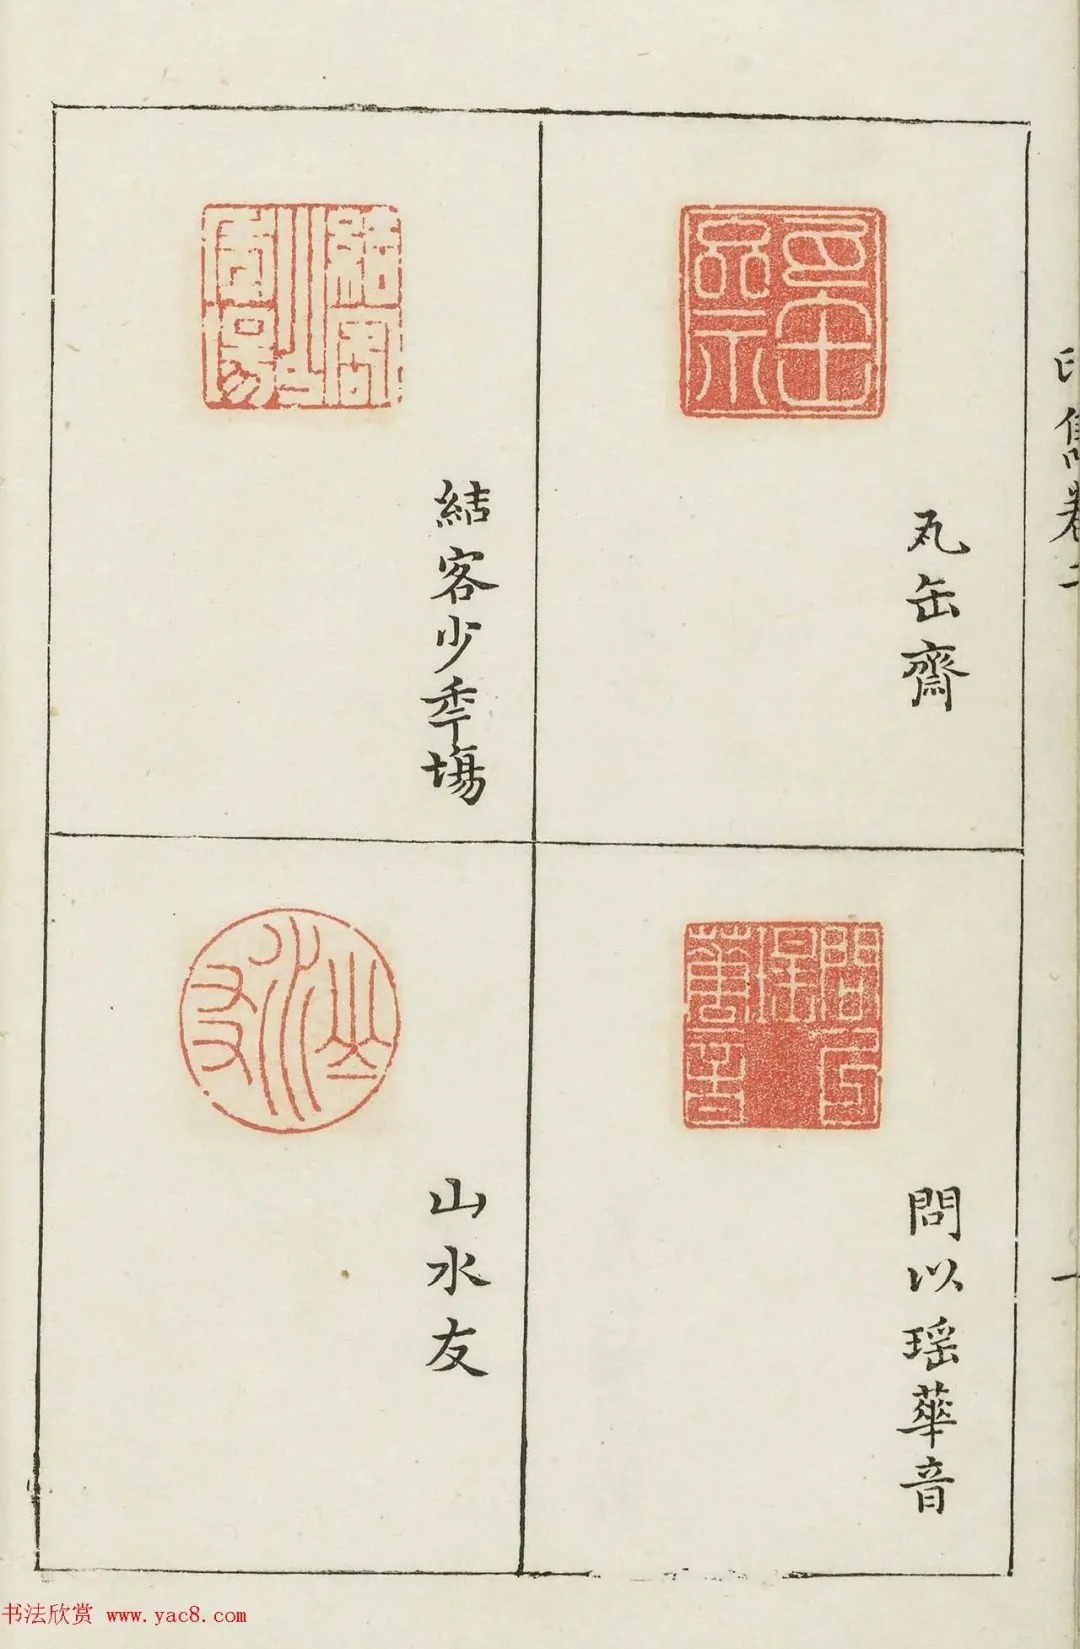 印雋卷二
一
丸缶齋
結客少秊場
問以瑶華音
山水友
书法欣赏 www.yac8.com